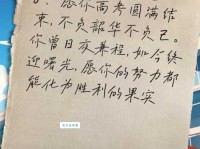 愿你高考圆满结
束，不负韶华不负己。
你曾日夜兼程，如今终
迎曙光，愿你的努力都
能化为胜利的果实